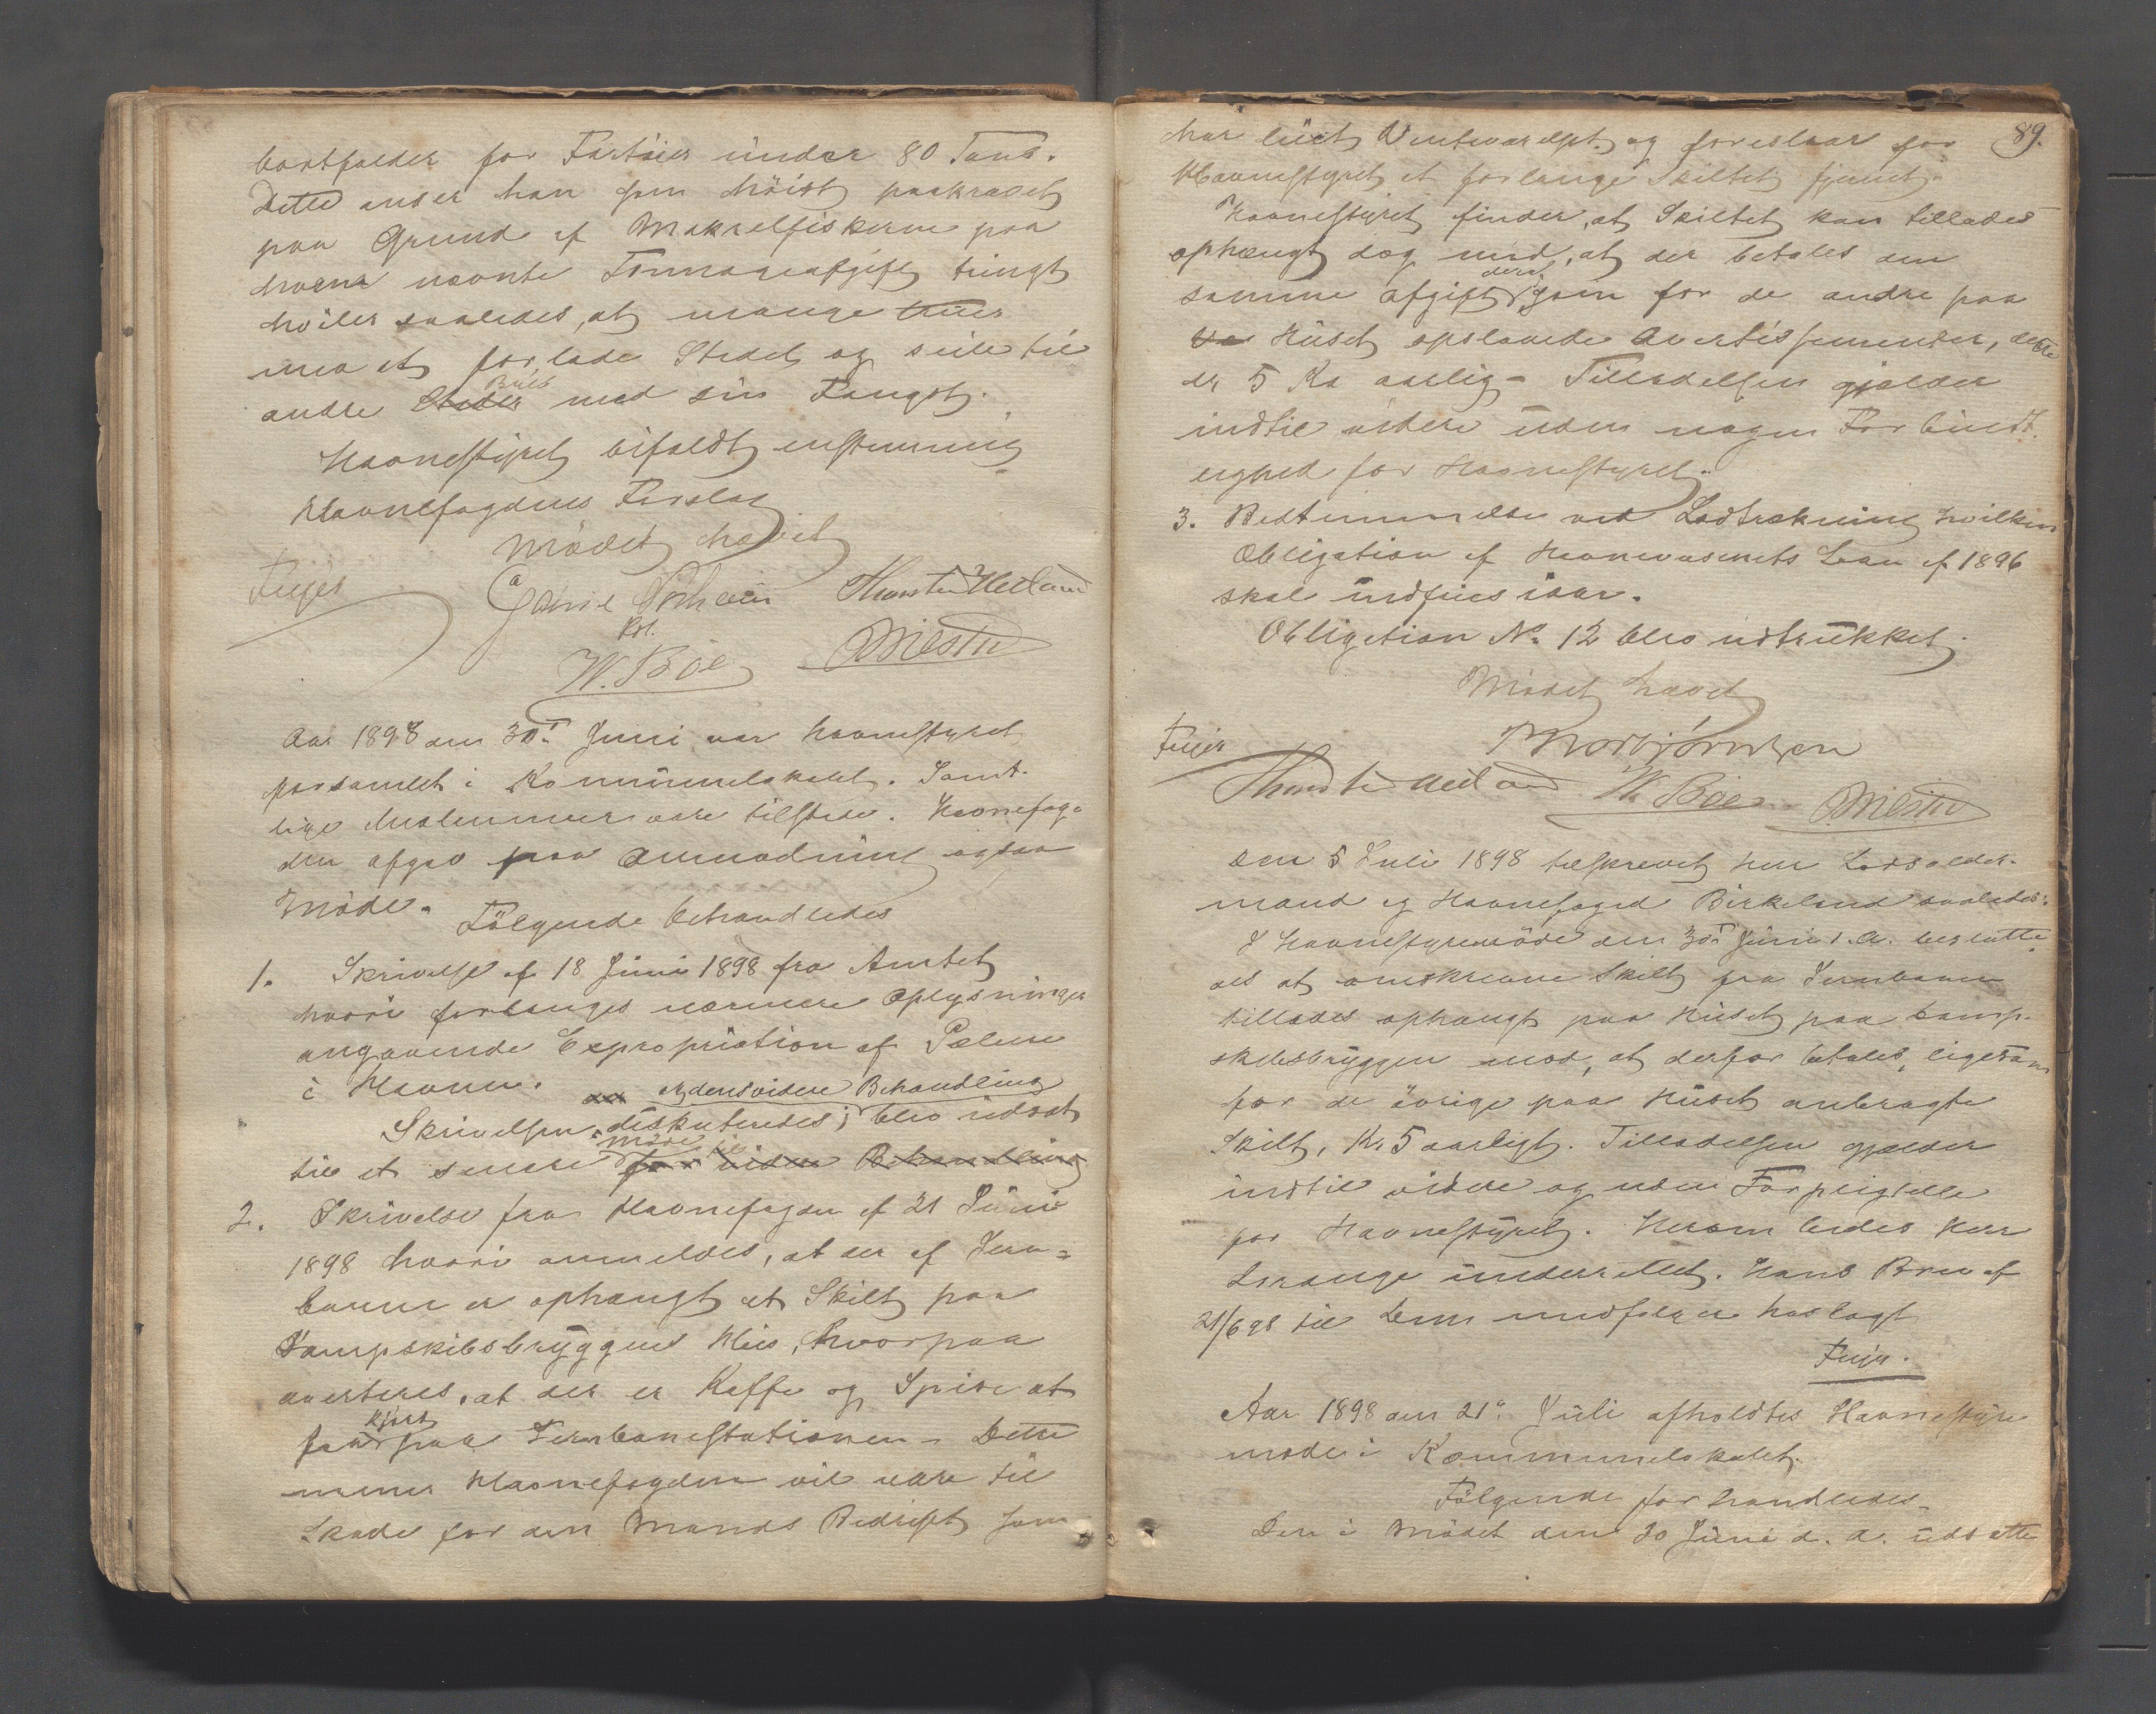 bortfalder for Fartöier under 80 Tons.
Dette anser han som höist paakrævet
paa Grund af Makrelfiskerne paa
hvem nævnte Tonnageafgift tungt
hviler saaledes, at mange
maa forlade Stedet og seile til
andre Byer med sin Fangst.
Havnestyret bifaldt enstemmig
Havnefogdens Forslag
Mödet hævet
Feyer
Thorsten Hetland
W. Böe
Aar 1898 den 30te Juni var Havnestyret
forsamlet i Kommunelokalet. Samt-
lige Medlemmer vare tilstede. Havnefog-
den afgav paa Anmodning ogsaa
Möde.
Fölgende behandledes
1. Skrivelse af 18 Juni 1898 fra Amtet
hvori forlanges nærmere Oplysninger
angaaende Expropriation af Pælene
i Havnen.
og dens videre Behandling
Skrivelsen diskuteredes; blev udsat
til et senere Möde for videre Behandling
2. Skrivelse fra Havnefogden af 21 Juni
1898 hvori anmeldes, at der af Jern-
banen er ophængt et Skilt paa
Dampskibsbryggens Hus, hvorpaa
averteres, at der er Kaffe og Spise at
faa kjöbt paa Jernbanestationen - Dette
mener Havnefogden vil være til
Skade for den Mands Bedrift som
89.
har leiet Venteværelset og foreslaar for
Havnestyret at forlange Skiltet fjernet.
Havnestyret finder, at Skiltet kan tillades
ophængt dog mod, at der betales den
samme Afgift derfor som for de andre paa
Huset opslaaede Avertissementer, dette
er 5 Kr aarlig - Tilladelsen gjælder
indtil videre uden nogen Forbindt-
lighed for Havnestyret.
3. Bestemmelse ved Lodtrækning hvilken
Obligation af Havnevæsenets Laan af 1896
skal indfries iaar.
Obligation No 12 blev udtrukket.
Mödet hævet
Feyer
Thorbjörnsen
Thorsten Hetland W. Böe
Den 5 Juli 1898 tilskrevet Herr Lodsolder-
mand og Havnefoged Birkeland saaledes:
I Havnestyremöde den 30te Juni d. A. beslutte-
des at omskrevne Skilt fra Jernbanen
tillades ophængt paa Huset paa Damp-
skibsbryggen mod, at derfor betales, ligesom
for de övrige paa Huset anbragte
Skilt, Kr 5 aarligt. Tilladelsen gjælder
indtil videre og uden Forpligtelse
for Havnestyret. Herom bedes Herr
underrettet. Hans Brev af
21/6 98 til Dem medfölger hoslagt
Feyer.
Aar 1898 den 21de Juli afholdtes Havnestyre
möde i Kommunelokalet.
Fölgende forhandledes -
Den i Mödet den 30 Juni d. A. udsatte